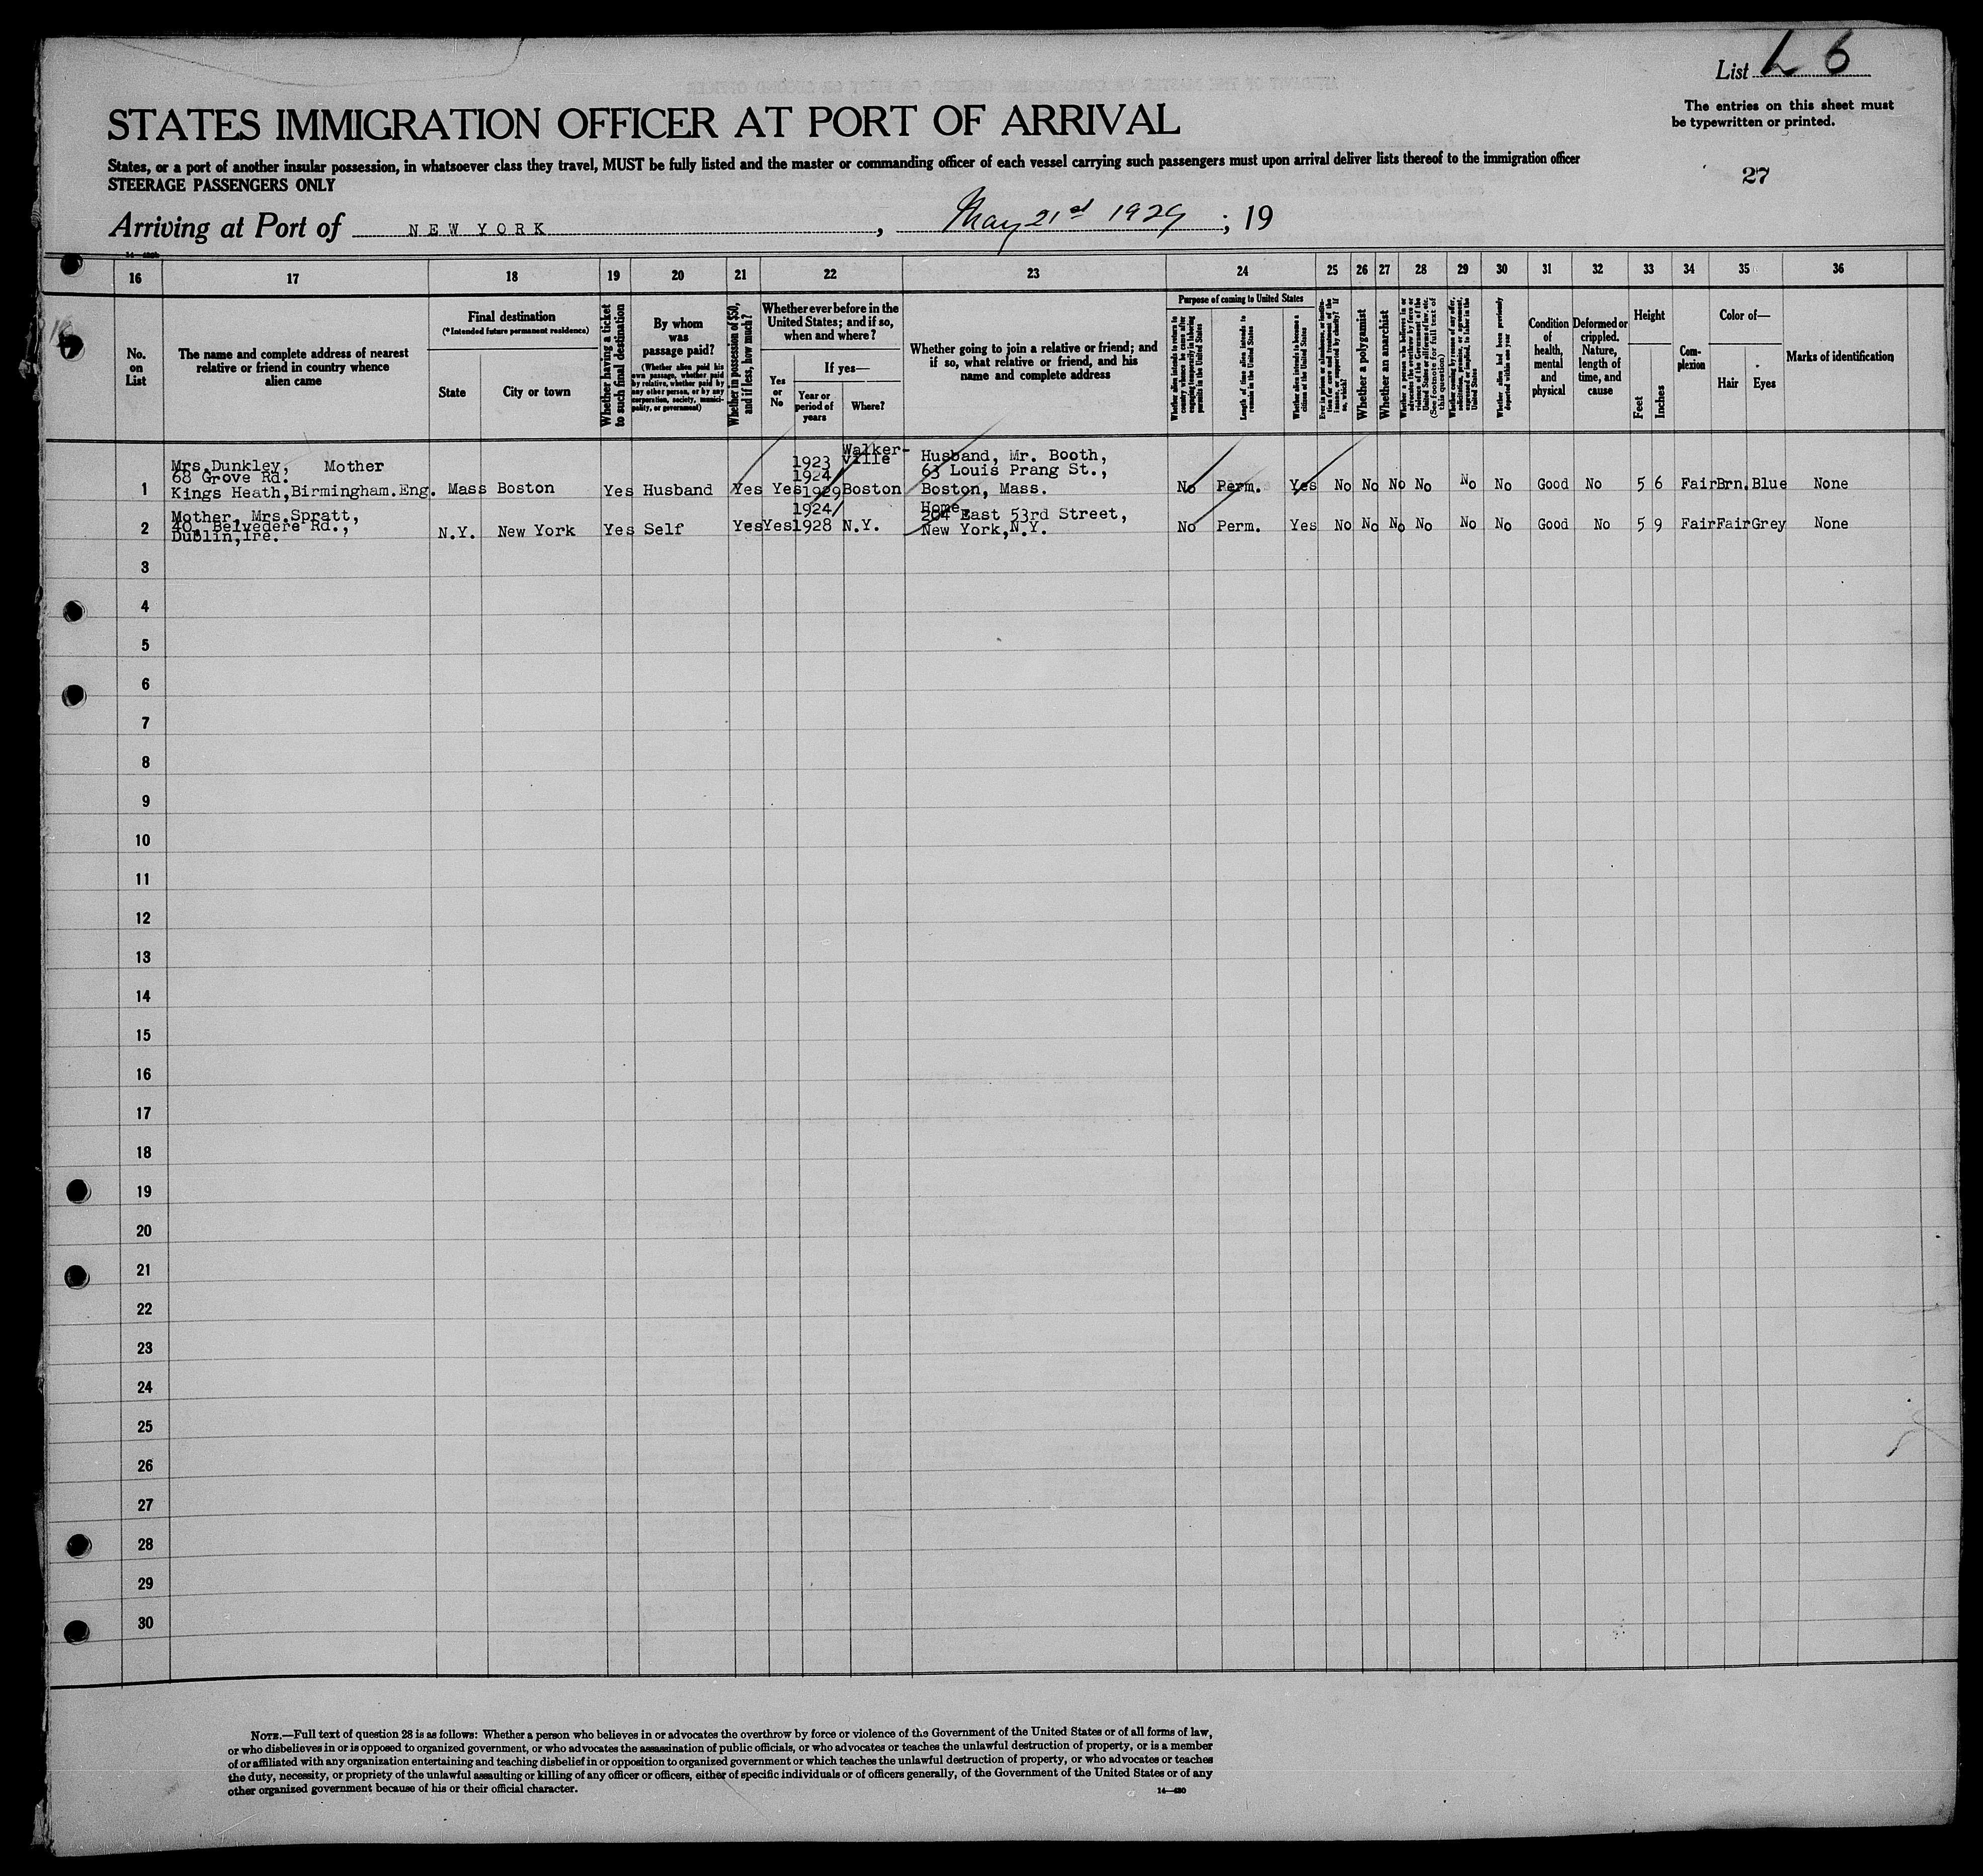 List L 6
The entries on this sheet must
be typewritten or printed.
STATES IMMIGRATION OFFICER AT PORT OF ARRIVAL
States, or a port of another insular possession, in whatsoever class they travel, MUST be fully listed and the master or commanding officer of each vessel carrying such passengers must upon arrival deliver lists thereof to the immigration officer
STEERAGE PASSENGERS ONLY
27
Arriving at Port of NEW YORK, May 21st 1929; 19
16 17 18 19 20 21 22 23 24 25 26 27 28 29 30 31 32 33 34 35 36
No. on List
The name and complete address of nearest
relative or friend in country whence
alien came
Final destination
(*Intended future permanent residence)
State
City or town
Whether having a ticket
to such final destination
By whom
was
passage paid?
(Whether alien paid his
own passage, whether paid
by relative, whether paid by
any other person, or by any
corporation, society, munici-
pality, or government)
Whether in possession of $50,
and if less, how much?
Whether ever before in the
United States; and if so,
when and where?
Yes
or
No
If yes—
Year or
period of
years
Where?
Whether going to join a relative or friend; and
if so, what relative or friend, and his
name and complete address
Purpose of coming to United States
Length of time alien intends to
remain in the United States
Whether alien intends to become a
citizen of the United States
Whether a polygamist
Whether an anarchist
Whether alien had been previously
deported within one year
Condition
of
health,
mental
and
physical
Deformed or
crippled.
Nature,
length of
time, and
cause
Height
Feet
Inches
Com-
plexion
Color of—
Hair
Eyes
Marks of identification
1
Mrs.Dunkley, Mother
68 Grove Rd.
Kings Heath,Birmingham.Eng.
Mass Boston Yes Husband Yes Yes
1923
1924
1929
Walker-
ville
Boston
Husband, Mr. Booth,
63 Louis Prang St.,
Boston, Mass.
No Perm. Yes No No No No No No Good No 5 6 Fair Brn. Blue None
2
Mother, Mrs.Spratt,
40, Belvedere Rd.,
Dublin,Ire.
N.Y. New York Yes Self Yes Yes
1924/
1928 N.Y.
Home,
204 East 53rd Street,
New York,N.Y.
No Perm. Yes No No No No No No Good No 5 9 Fair Fair Grey None
3
4
5
6
7
8
9
10
11
12
13
14
15
16
17
18
19
20
21
22
23
24
25
26
27
28
29
30
NOTE.—Full text of question 28 is as follows: Whether a person who believes in or advocates the overthrow by force or violence of the Government of the United States or of all forms of law,
or who disbelieves in or is opposed to organized government, or who advocates the assassination of public officials, or who advocates or teaches the unlawful destruction of property, or is a member
of or affiliated with any organization entertaining and teaching disbelief in or opposition to organized government or which teaches the unlawful destruction of property, or who advocates or teaches
the duty, necessity, or propriety of the unlawful assaulting or killing of any officer or officers, either of specific individuals or of officers generally, of the Government of the United States or of any
other organized government because of his or their official character.
14—430